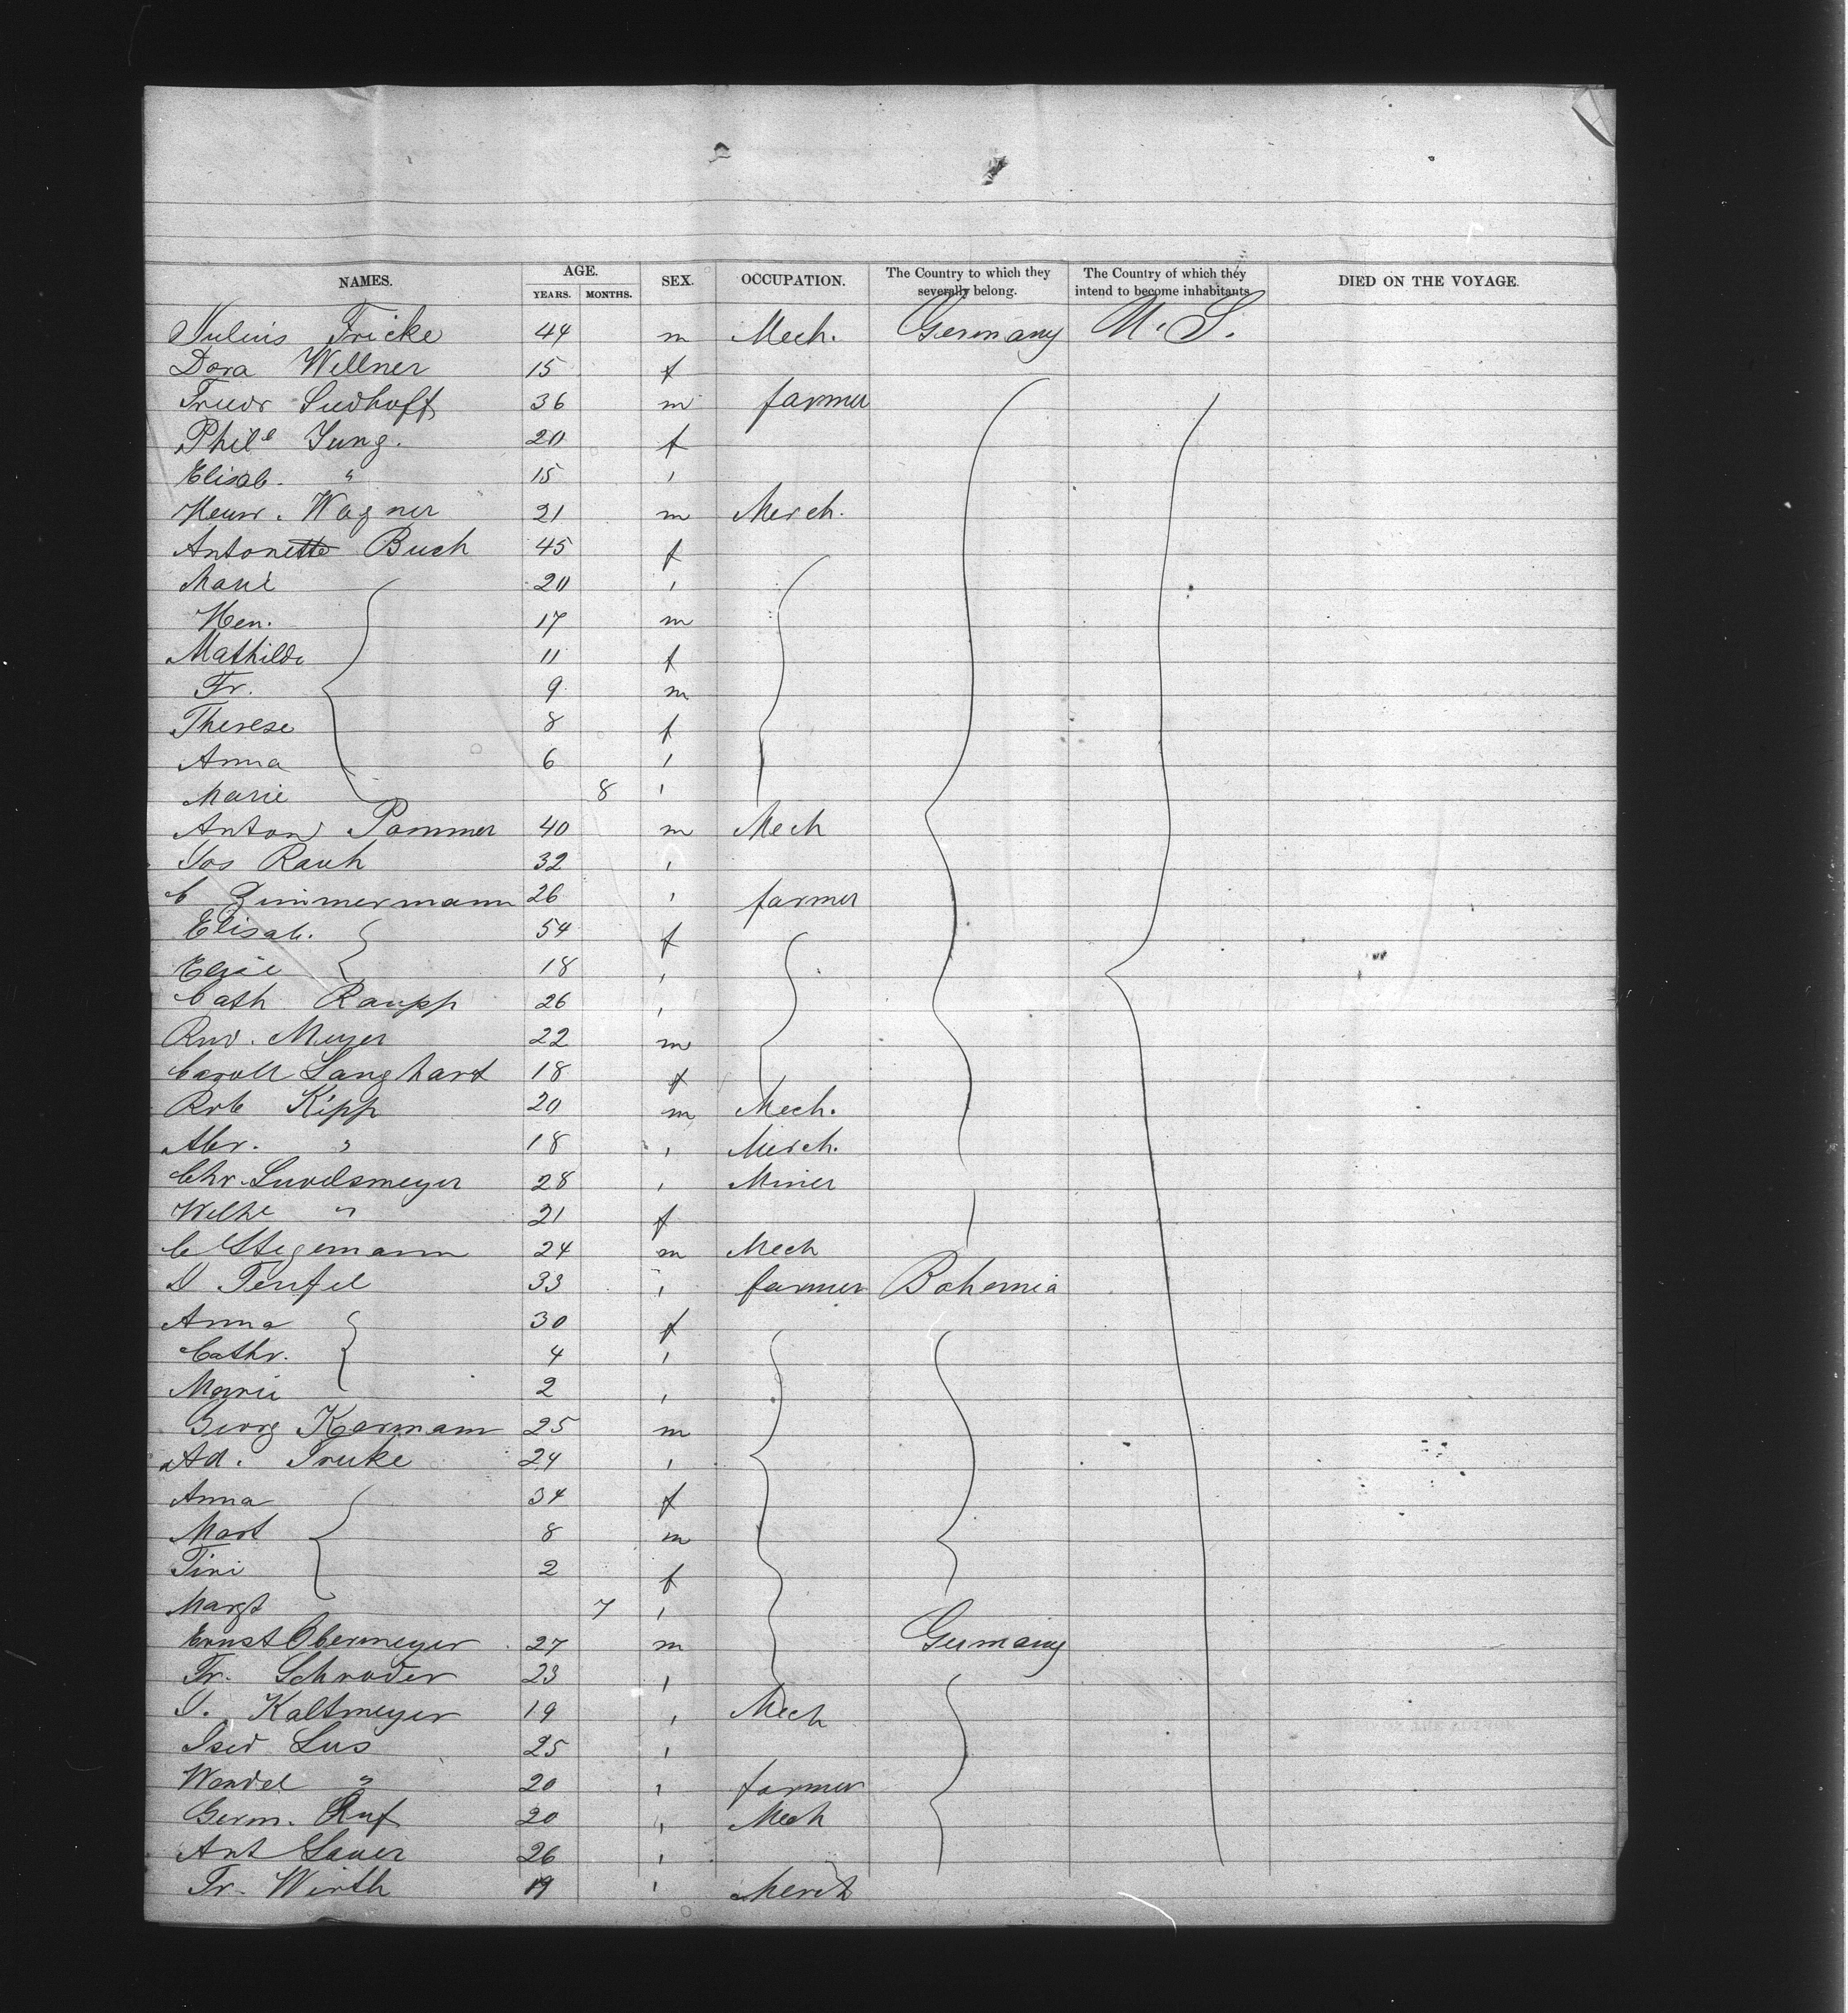 NAMES. AGE. SEX. OCCUPATION. The Country to which they severally belong. The Country of which they intend to become inhabitants DIED ON THE VOYAGE.
YEARS. MONTHS.
Julius Fricke 44 m Mech. Germany U. S.
Dora Wellner 15 f
Friedr Sudhoff 36 m farmer
Phile Jung. 20 f
Elisab. " 15 '
Heinr. Wagner 21 m Merch.
Antonette Buch 45 f
Marie 20 '
Hen. 17 m
Mathilde 11 f
Fr. 9 m
Therese 8 f
Anna 6 '
Marie 8 '
Anton Pommer 40 m Mech
Jos Rauh 32 '
C Zimmermann 26 ' farmer
Elisab. 54 f
18 '
Cath Raupp 26 '
Rud. Meyer 22 m
Carol Langhart 18 f
Rob Kipp 20 m Mech.
Abr. " 18 ' Merch.
Chr. 28 ' Miner
Wilhe " 21 f
C Stegemann 24 m Mech
D Teufel 33 ' farmer Bohemia
Anna 30 f
Cathr. 4 '
Marie 2 '
Georg Karmann 25 m
Ad. 24 '
Anna 34 f
Mart 8 m
Tini 2 f
Margt 7 '
Ernst Obermeyer 27 m Germany
Fr. Schroder 23 '
J. Kaltmeyer 19 ' Mech
Isid Lus 25 '
Wendel " 20 ' farmer
Germ. Ruf 20 ' Mech
Ant Sauer 26 '
Fr. Wirth 19 ' Merch